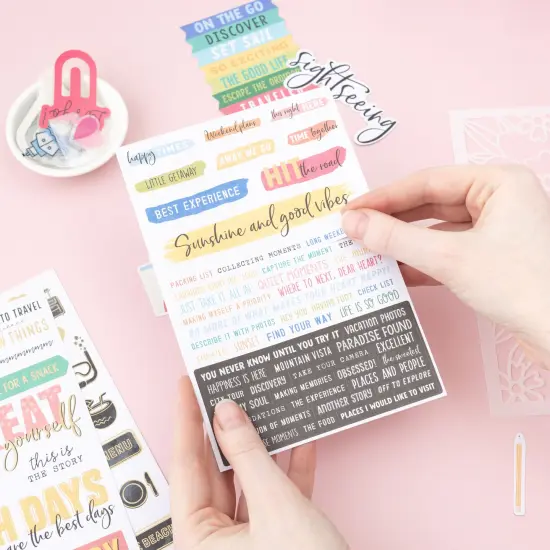 ON THE GO
DISCOVER
SET SAIL
SO EXCITING
THE GOOD LIFE
ESCAPE THE ORDINARY
TRAVELER
sightseeing
this right here
#weekend plans
happy times
TIME together
AWAY WE GO
LITTLE GETAWAY
HIT the road
BEST EXPERIENCE
Sunshine and good vibes
PACKING LIST COLLECTING MOMENTS LONG WEEKEND
CAPTURE THE MOMENT THE
JUST TAKE IT ALL IN QUIET MOMENTS WHERE TO NEXT, DEAR HEART?
MAKING MYSELF A PRIORITY
DESCRIBE IT WITH PHOTOS HEY YOU HAVING FUN? CHECK LIST
SUNSET FIND YOUR WAY LIFE IS SO GOOD
YOU NEVER KNOW UNTIL YOU TRY IT VACATION PHOTOS
HAPPINESS IS HERE MOUNTAIN VISTA PARADISE FOUND
CITY TOUR DISCOVERY TAKE YOUR CAMERA EXCELLENT
MY SOUL MAKING MEMORIES OBSESSED! the sweetest
THE EXPERIENCE PLACES AND PEOPLE
OF MOMENTS ANOTHER STORY OFF TO EXPLORE
MOMENTS THE FOOD PLACES I WOULD LIKE TO VISIT
TO TRAVEL
THINGS
FOR A SNACK
EAT
yourself
this is
THE STORY
DAYS
are the best days
MENU
BEACH